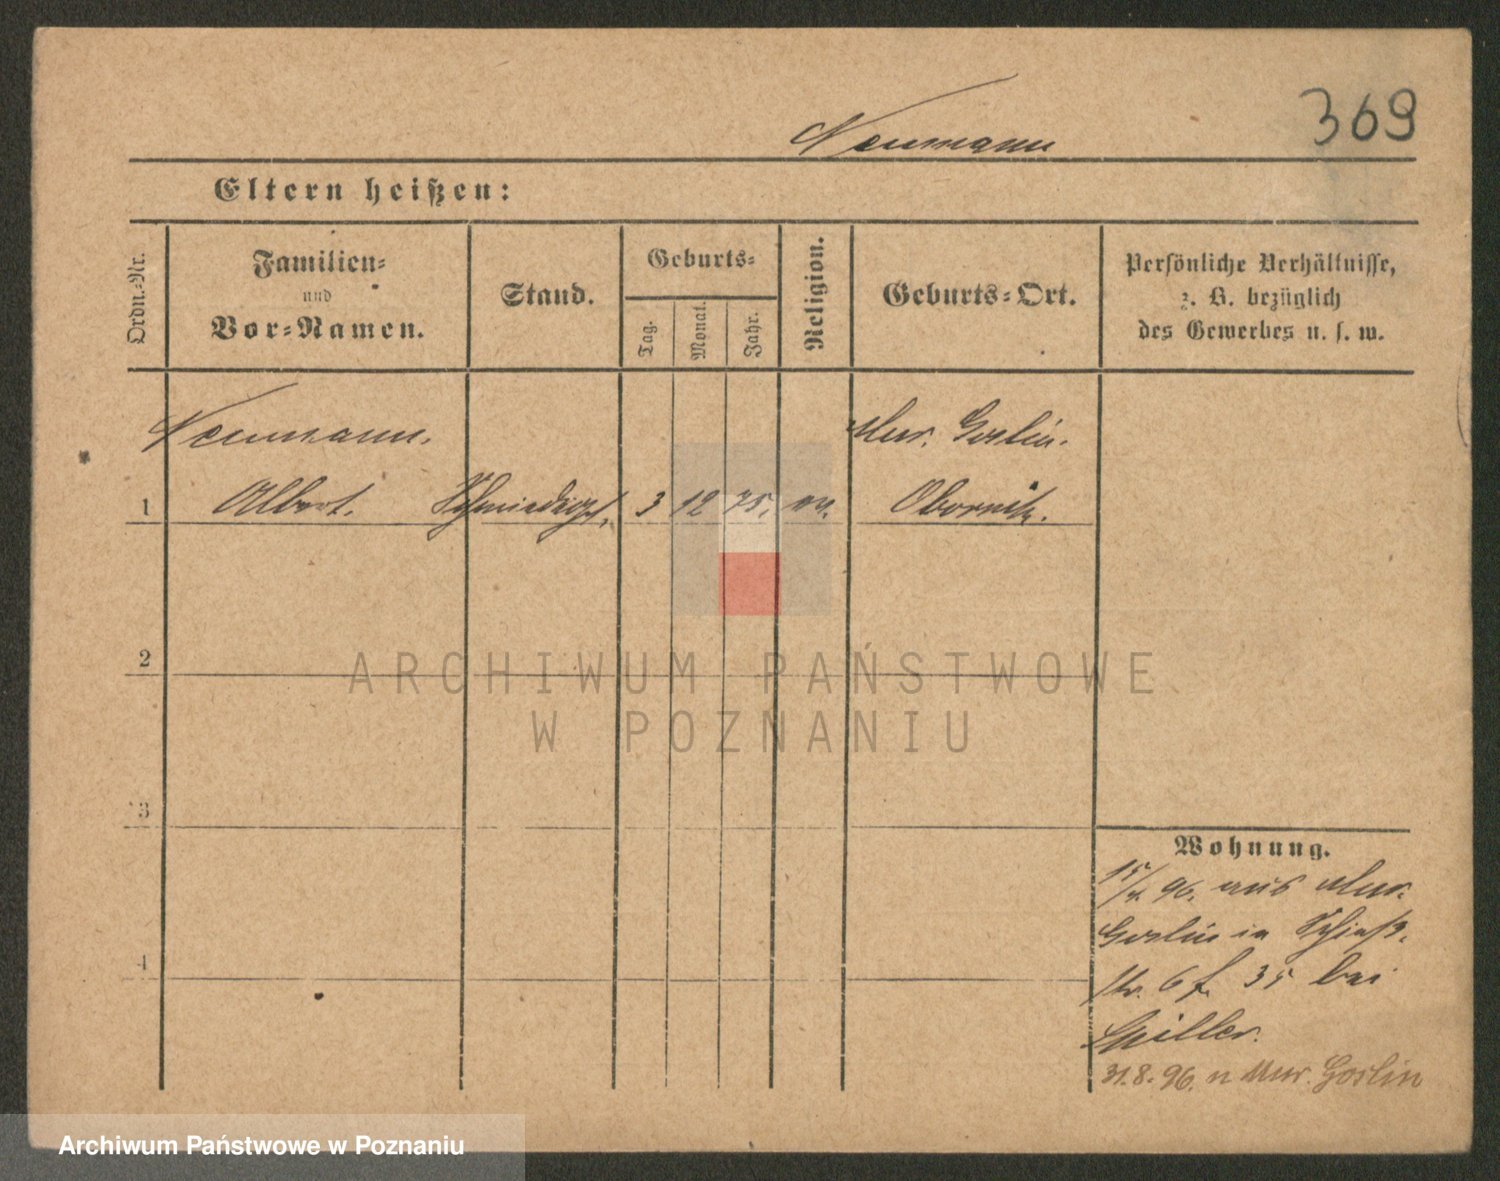 369
Neumann
Eltern heißen:
Ordn.-Nr.
Familien-
und
Vor-Namen.
Stand.
Geburts-
Tag.
Monat.
Jahr.
Religion.
Geburts-Ort.
Persönliche Verhältnisse,
z. B. bezüglich
des Gewerbes u. s. w.
Neumann. Mur. Goslin.
1 Albert. Schmiedges. 3 12 75. ev. Obornik.
2
3
4
ARCHIWUM PAŃSTWOWE
W POZNANIU
Wohnung.
96. aus Mur.
Goslin in Schieß-
str. 6 f. 35 bei
31.8.96. n Mur. Goslin
Archiwum Państwowe w Poznaniu